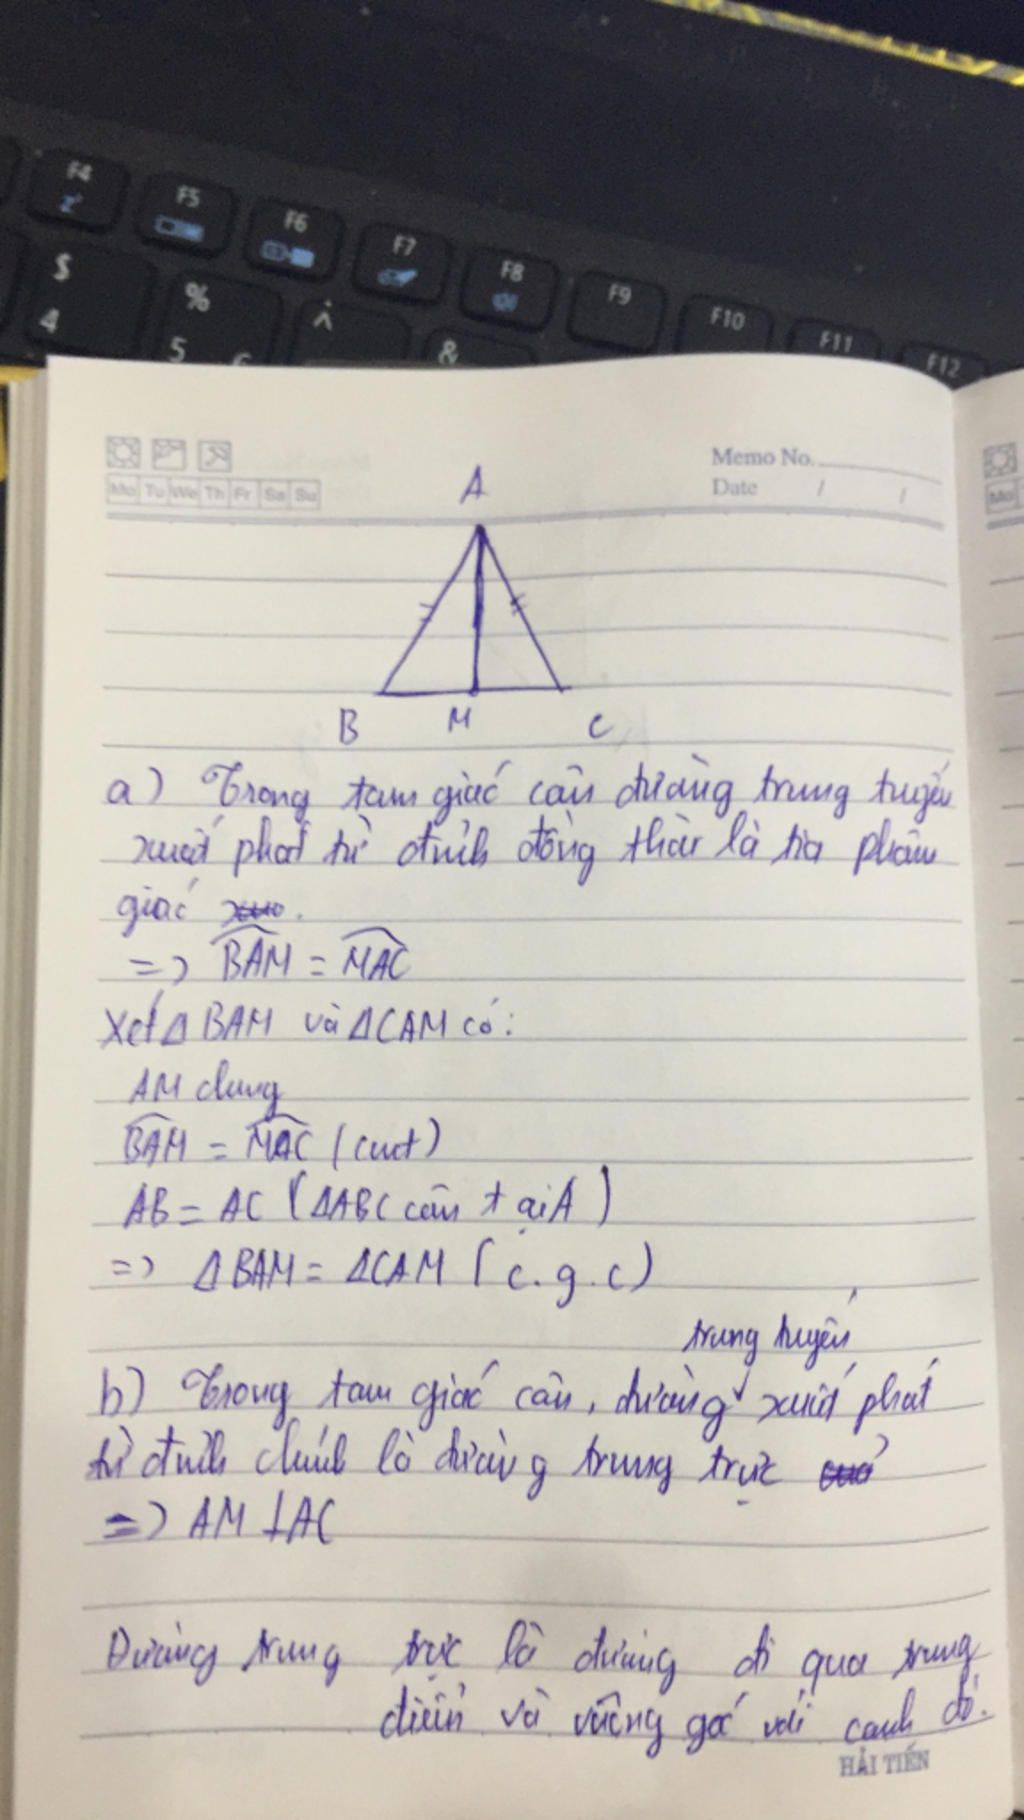 F4
F5
F6
F7
F8
F9
F10
F11
F12
$
4
%
5
^
6
&
Memo No.
Date / /
Mo Tu We Th Fr Sa Su
Mo
A
B M C
a) Trong tam giác cân đường trung tuyến
xuất phát từ đỉnh đồng thời là tia phân
giác
=> BAM = MAC
Xét Δ BAM và ΔCAM có:
AM chung
BAM = MAC (cmt)
AB = AC (ΔABC cân tại A)
=> ΔBAM = ΔCAM (c.g.c)
trung tuyến
b) Trong tam giác cân, đường xuất phát
từ đỉnh chính là đường trung trực
=> AM ⊥ AC
Đường trung trực là đường đi qua trung
điểm và vuông góc với cạnh đó.
HẢI TIẾN